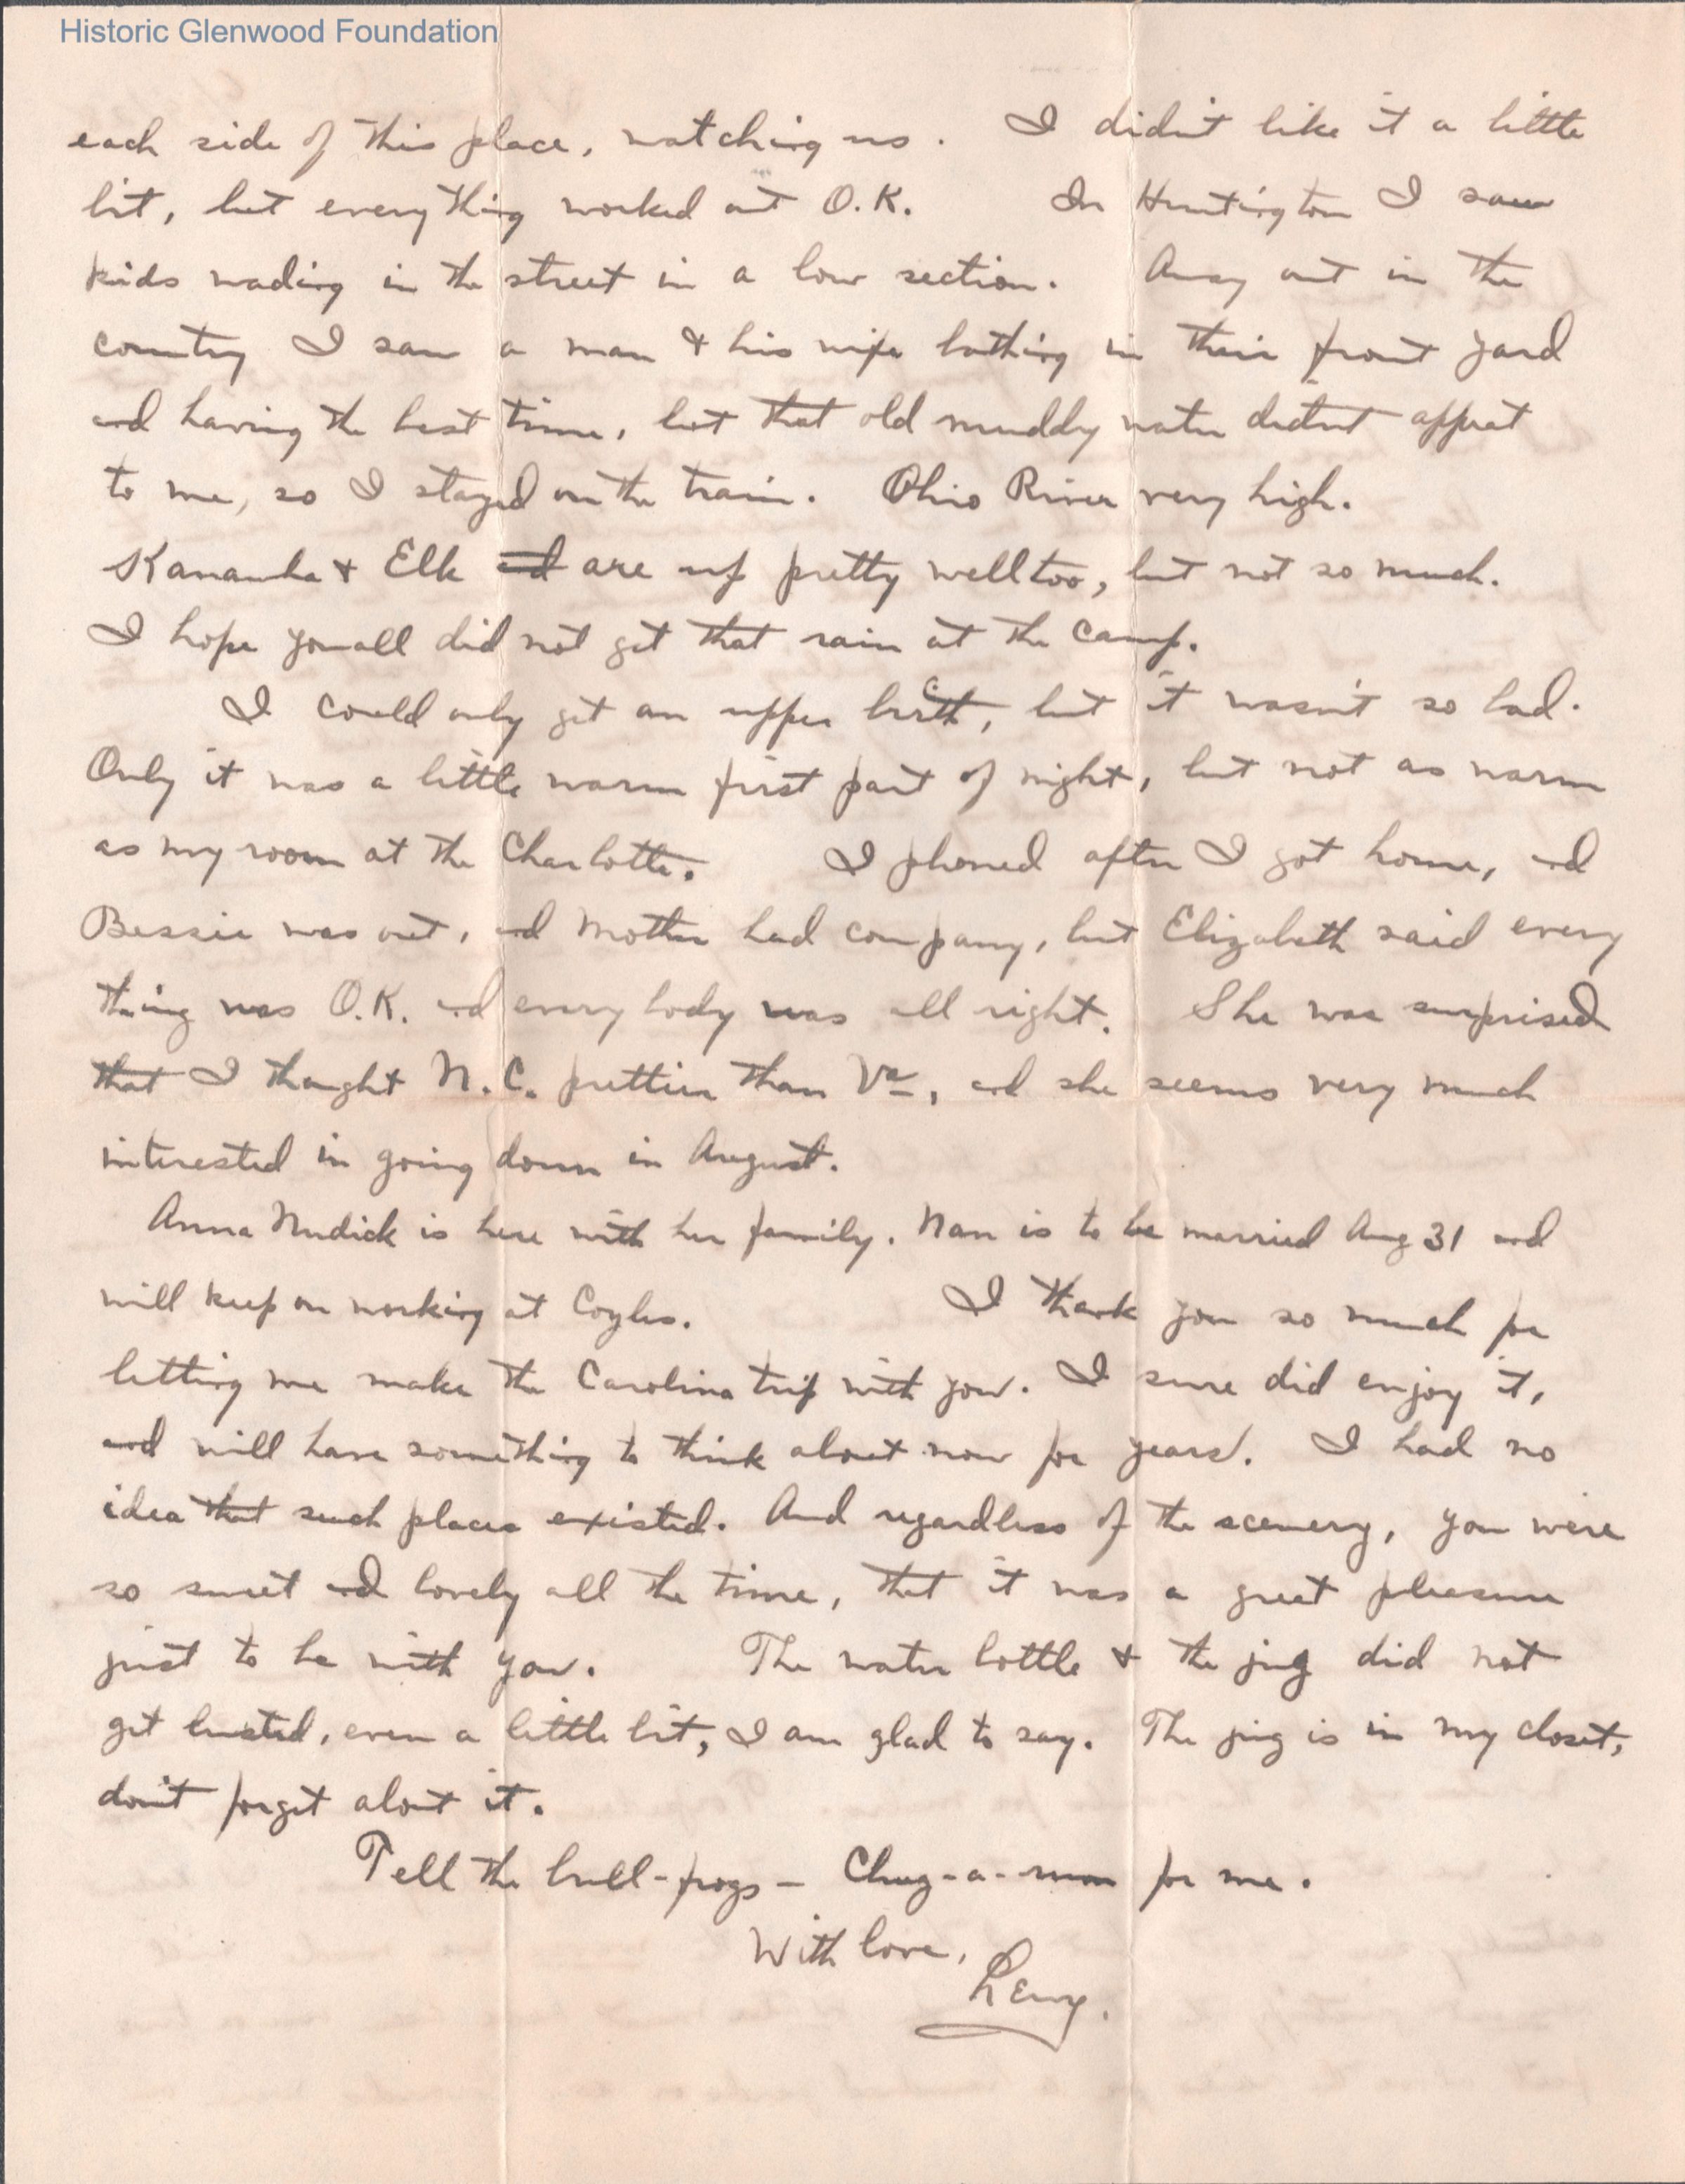 Historic Glenwood Foundation
each side of this place, watching us. I didn't like it a little
bit, but everything worked out O.K. In Huntington I saw
kids wading in the street in a low section. Away out in the
country I saw a man & his wife bathing in their front yard
and having the best time, but that old muddy water didn't appeal
to me, so I stayed on the train. Ohio River very high.
Kanawha & Elk and are up pretty well too, but not so much.
I hope you all did not get that rain at the camp.
I could only get an upper berth, but it wasn't so bad.
Only it was a little warm first part of night, but not as warm
as my room at the Charlotte. I phoned after I got home, and
Bessie was out, and Mother had company, but Elizabeth said every
thing was O.K. and every body was all right. She was surprised
that I thought N.C. prettier than Va, and she seems very much
interested in going down in August.
Anna is here with her family. Nan is to be married Aug 31 and
will keep on working at Coyles. I thank you so much for
letting me make the Carolina trip with you. I sure did enjoy it,
and will have something to think about now for years. I had no
idea that such places existed. And regardless of the scenery, you were
so sweet and lovely all the time, that it was a great pleasure
just to be with you. The water bottle & the jug did not
get busted, even a little bit, I am glad to say. The jug is in my closet,
don't forget about it.
Tell the bull-frogs - Chug-a-rum for me.
With love,